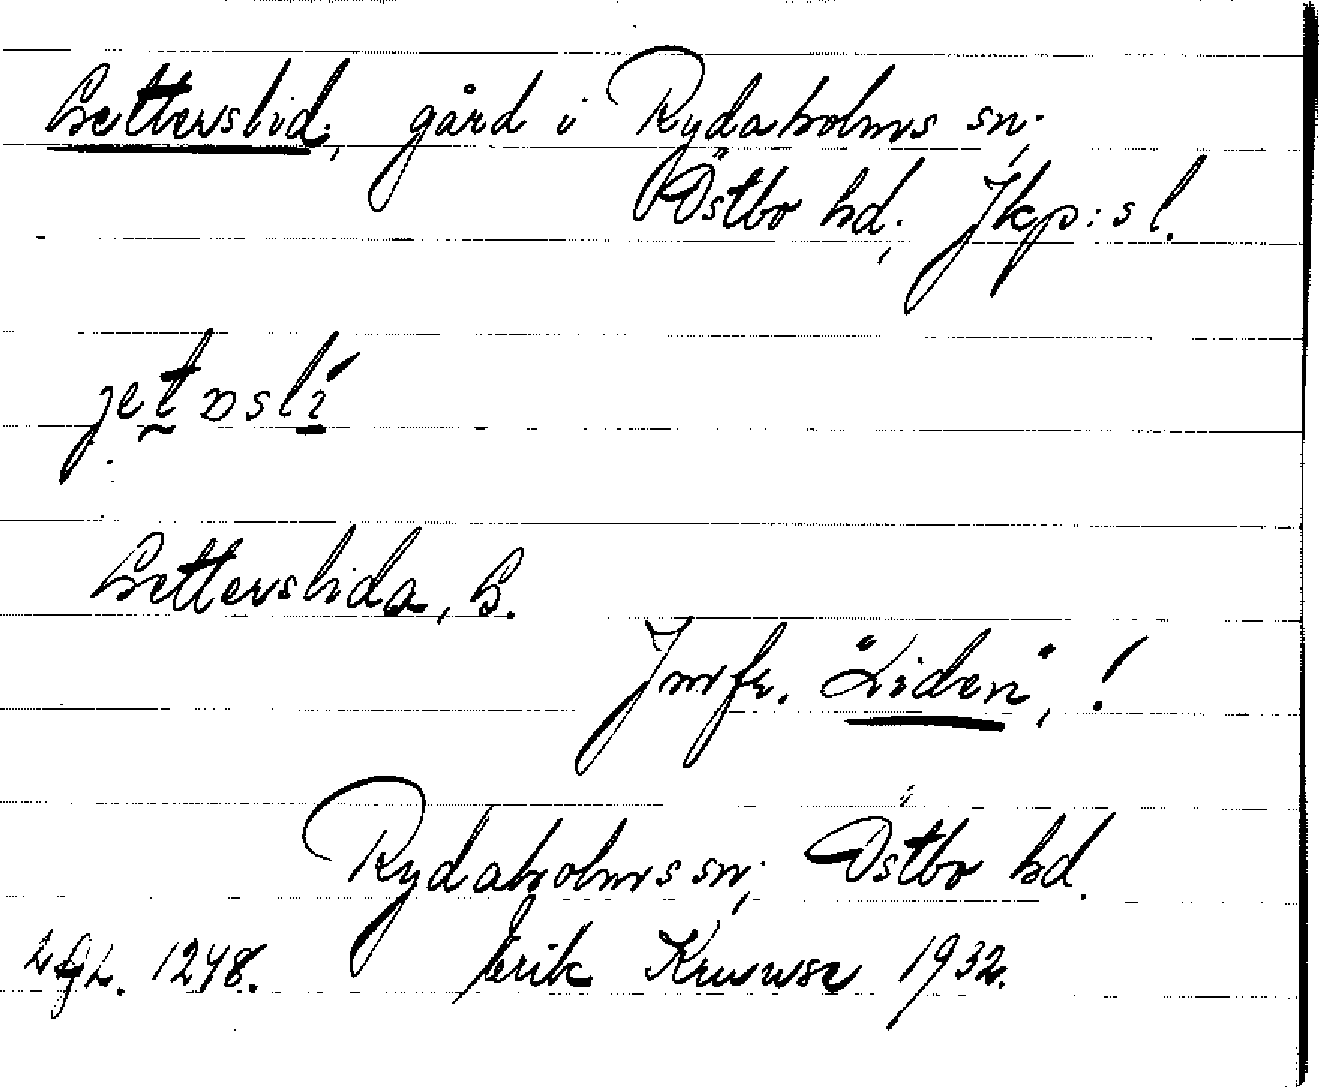 Getterslid, gård i Rydaholms sn.,
Östbo hd., Jkp:s l.
jetəslí
Getterslida, G.
Jmfr. "Liden", !
Rydaholms sn., Östbo hd.
1248. Erik Kruuse 1932.